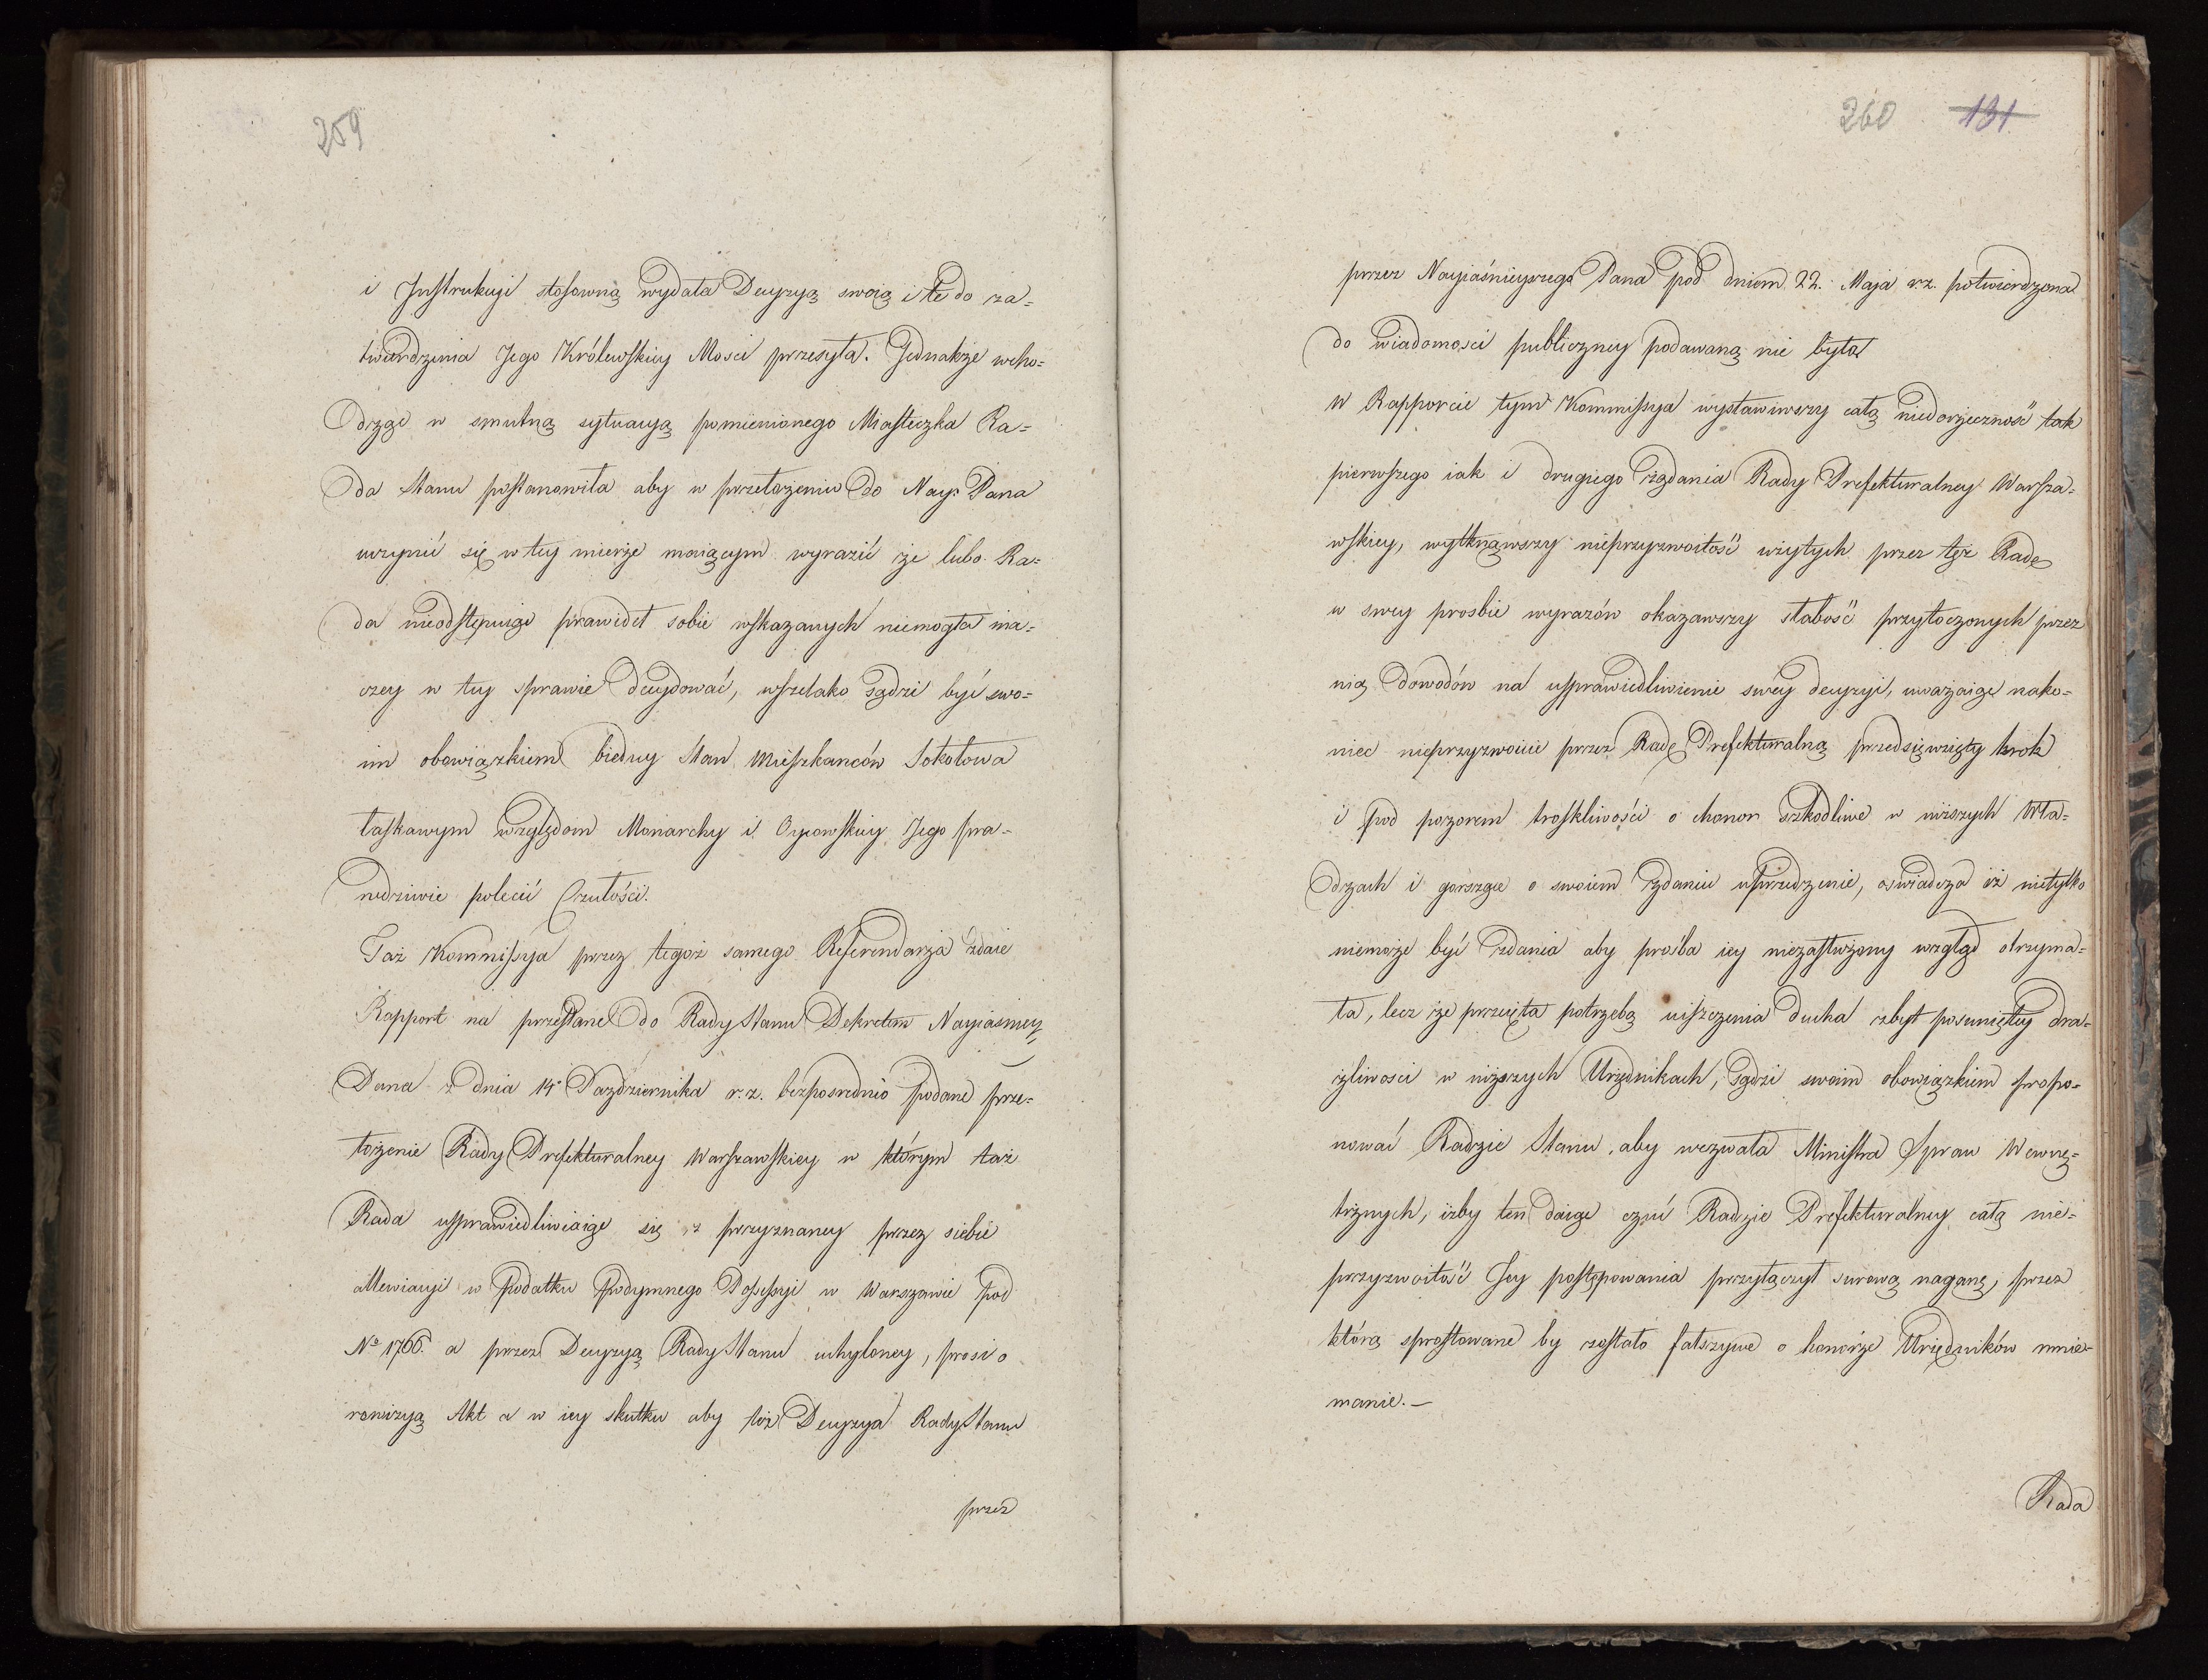 259
i Instrukcyi stosowną wydała Decyzyą swoią i te do za=
twierdzenia Jego Królewskiey Mości przesyła. Jednakże wcho=
dząc w smutną sytuacyą pomienionego Miasteczka Ra=
da Stanu postanowiła aby w przełożeniu do Nayj. Pana
uczynić się w tey mierze maiącym wyrazić że lubo Ra=
da nieodstępuiąc prawideł sobie wskazanych niemogła ina=
czey w tey sprawie decydować, wszelako sądzi być swo=
im obowiązkiem biedny Stan Mieszkanców Sokołowa
łaskawym względom Monarchy i Oycowskiey Jego pra=
wdziwie polecić Czułości.
Taż Kommissya przez tegoż samego Referendarza zdaie
Rapport na przesłane do Rady Stanu Dekretem Nayiasniey=
Pana z dnia 14 Pazdziernika r. z. bezposrednio podane prze=
łożenie Rady Prefekturalney Warszawskiey w którym taż
Rada usprawiedliwiaiąc się z przyznaney przez siebie
allewiacyi w Podatku Podymnego Possessyi w Warszawie pod
No 1766. a przez Decyzyą Rady Stanu uchyloney, prosi o
rewizyą Akt a w iey skutku aby też Decyzya Rady Stanu
przez
260 131
przez Nayiaśnieyszego Pana pod dniem 22. Maja r. z. potwierdzona
do wiadomości publiczney podawaną nie była
W Rapporcie tym Kommissya wystawiwszy całą niedorzeczność tak
pierwszego iak i drugiego żądania Rady Prefekturalney Warsza=
wskiey, wytknąwszy nieprzyzwoitość użytych przez tęż Radę
w swey prosbie wyrazów okazawszy słabość przytoczonych przez
nią dowodów na usprawiedliwienie swey decyzyi, uważaiąc nako=
niec nieprzyzwoicie przez Radę Prefekturalną przedsięwzięty krok
i pod pozorem troskliwości o chonor szkodliwe w niższych Wła=
dzach i gorszące o swoiem zdaniu uprzedzenie, oświadcza iż nietylko
niemoże być zdania aby prośba iey niezasłużony wzgląd otrzyma=
ła, lecz że przeięta potrzebą niszczenia ducha zbyt posunietey dra=
żliwości w niższych Urzędnikach, sądzi swoim obowiązkiem propo=
nować Radzie Stanu, aby wezwała Ministra Spraw Wewnę=
trznych, iżby ten daiąc czuć Radzie Prefekturalney całą nie=
przyzwoitość Jey postępowania przyłączył surową naganę, przez
którą sprostowane by zostało fałszywe o honorze Urzędników mnie=
manie. —
Rada